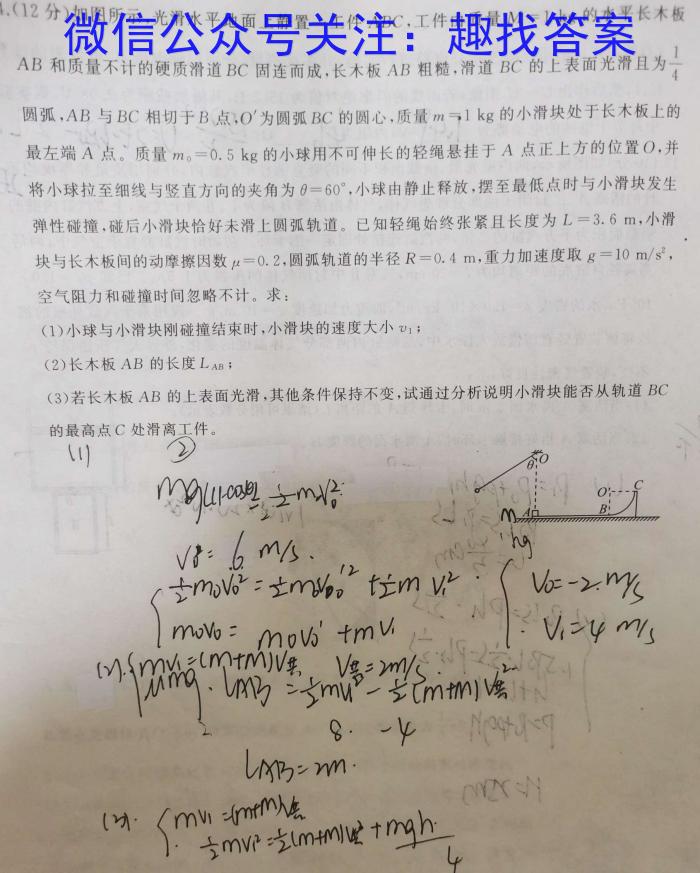 4.(12分)如图所示,光滑水平地面上静置一工件ABC,工件由质量M=1kg的水平长木板
微信公众号关注:趣找答案
AB和质量不计的硬质滑道BC固连而成,长木板AB粗糙,滑道BC的上表面光滑且为1/4
圆弧,AB与BC相切于B点,O′为圆弧BC的圆心,质量m=1 kg的小滑块处于长木板上的
最左端A点。质量m₀=0.5 kg的小球用不可伸长的轻绳悬挂于A点正上方的位置O,并
将小球拉至细线与竖直方向的夹角为θ=60°,小球由静止释放,摆至最低点时与小滑块发生
弹性碰撞,碰后小滑块恰好未滑上圆弧轨道。已知轻绳始终张紧且长度为L=3.6 m,小滑
块与长木板间的动摩擦因数μ=0.2,圆弧轨道的半径R=0.4 m,重力加速度取g=10 m/s²,
空气阻力和碰撞时间忽略不计。求:
(1)小球与小滑块刚碰撞结束时,小滑块的速度大小v₁;
(2)长木板AB的长度L_AB;
(3)若长木板AB的上表面光滑,其他条件保持不变,试通过分析说明小滑块能否从轨道BC
的最高点C处滑离工件。
(1) ②
O
θ
O′ C
m A B
1kg
v₀=6 m/s.
½m₀v₀²=½m₀v₀′²+½mv₁² v₀=-2 m/s
m₀v₀=m₀v₀′+mv₁ v₁=4 m/s
(2). mv₁=(m+M)v共 v共=2m/s.
μmg·L_AB=½mv₁²-½(m+M)v共²
2 8 -4
L_AB=2m.
(3). mv₁=(m+M)v共
½mv₁²=½(m+M)v共²+mgh
4